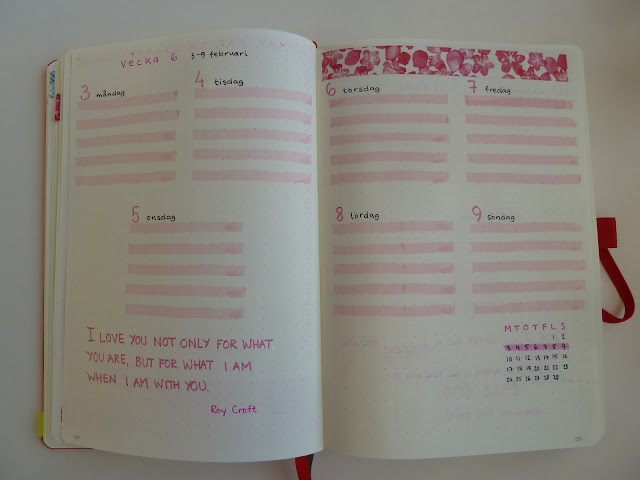 vecka 6 3-9 februari
3 måndag
4 tisdag
5 onsdag
I LOVE YOU NOT ONLY FOR WHAT
YOU ARE, BUT FOR WHAT I AM
WHEN I AM WITH YOU.
Roy Croft
6 torsdag
7 fredag
8 lördag
9 söndag
M T O T F L S
1 2
3 4 5 6 7 8 9
10 11 12 13 14 15 16
17 18 19 20 21 22 23
24 25 26 27 28 29